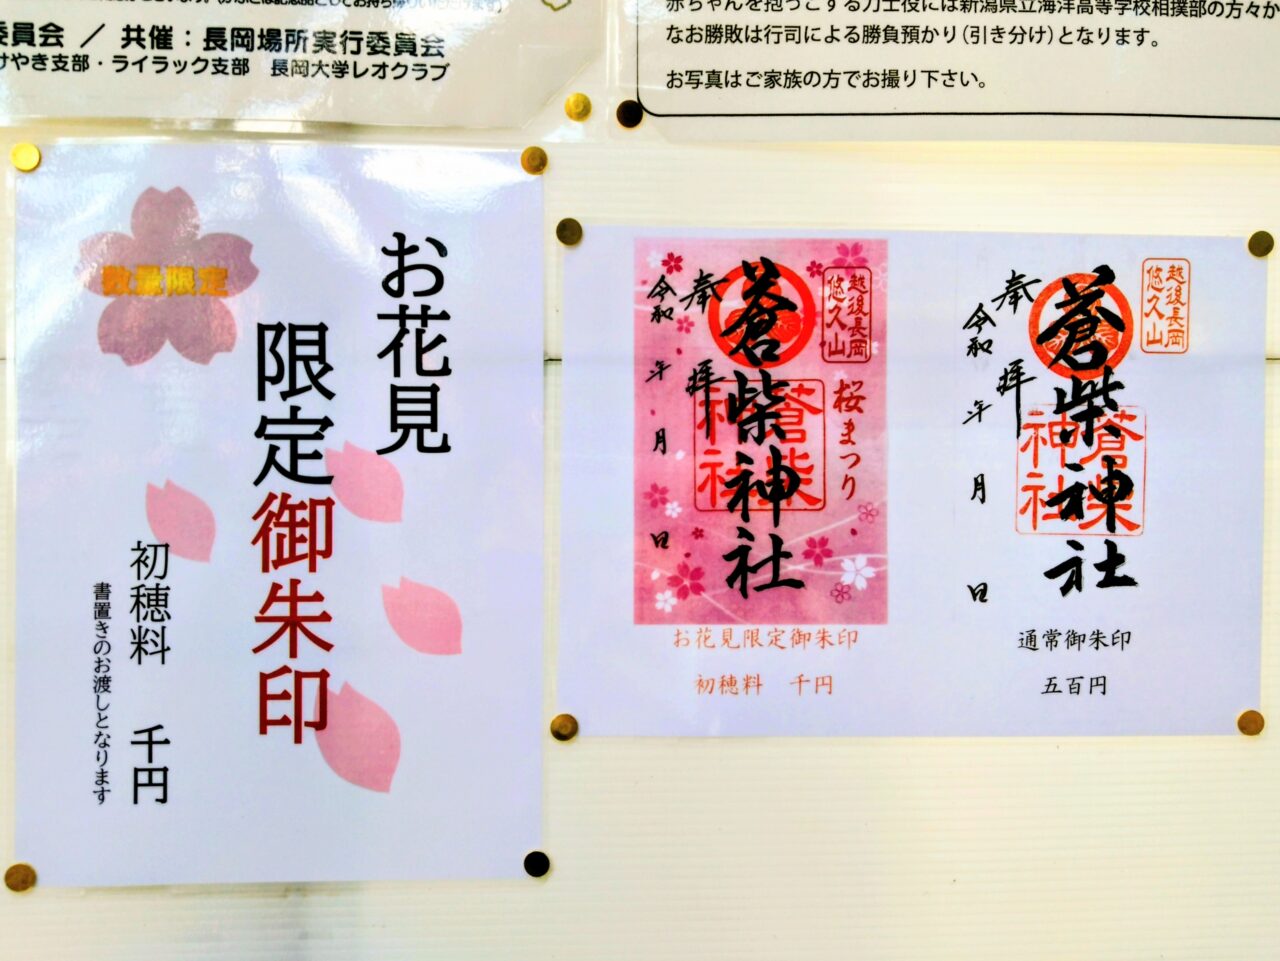 委員会 / 共催：長岡場所実行委員会
けやき支部・ライラック支部　長岡大学レオクラブ
赤ちゃんを抱っこする力士役には新潟県立海洋高等学校相撲部の方々か
なお勝敗は行司による勝負預かり（引き分け）となります。
お写真はご家族の方でお撮り下さい。
数量限定
お花見
限定御朱印
初穂料　千円
書置きのお渡しとなります
越後長岡
悠久山
桜まつり
蒼柴神社
蒼柴
神社
奉拝
令和　年　月　日
お花見限定御朱印
初穂料　千円
越後長岡
悠久山
蒼柴神社
蒼柴
神社
奉拝
令和　年　月　日
通常御朱印
五百円